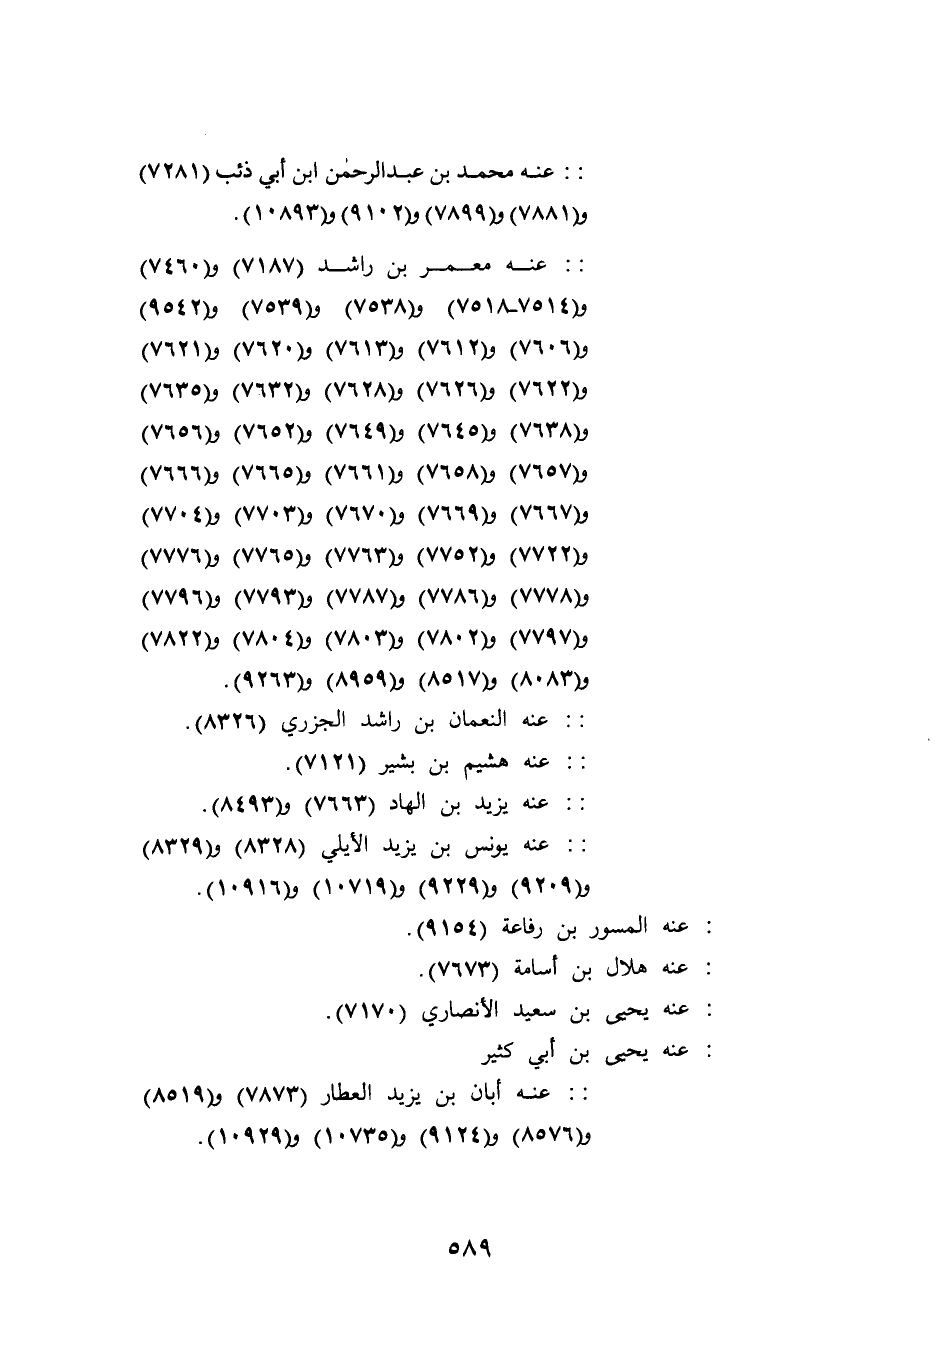 :: عنه محمد بن عبدالرحمٰن ابن أبي ذئب (٧٢٨١)
و(٧٨٨١) و(٧٨٩٩) و(٩١٠٢) و(١٠٨٩٣).
:: عنه معمر بن راشد (٧١٨٧) و(٧٤٦٠)
و(٧٥١٤-٧٥١٨) و(٧٥٣٨) و(٧٥٣٩) و(٩٥٤٢)
و(٧٦٠٦) و(٧٦١٢) و(٧٦١٣) و(٧٦٢٠) و(٧٦٢١)
و(٧٦٢٢) و(٧٦٢٦) و(٧٦٢٨) و(٧٦٣٢) و(٧٦٣٥)
و(٧٦٣٨) و(٧٦٤٥) و(٧٦٤٩) و(٧٦٥٢) و(٧٦٥٦)
و(٧٦٥٧) و(٧٦٥٨) و(٧٦٦١) و(٧٦٦٥) و(٧٦٦٦)
و(٧٦٦٧) و(٧٦٦٩) و(٧٦٧٠) و(٧٧٠٣) و(٧٧٠٤)
و(٧٧٢٢) و(٧٧٥٢) و(٧٧٦٣) و(٧٧٦٥) و(٧٧٧٦)
و(٧٧٧٨) و(٧٧٨٦) و(٧٧٨٧) و(٧٧٩٣) و(٧٧٩٦)
و(٧٧٩٧) و(٧٨٠٢) و(٧٨٠٣) و(٧٨٠٤) و(٧٨٢٢)
و(٨٠٨٣) و(٨٥١٧) و(٨٩٥٩) و(٩٢٦٣).
:: عنه النعمان بن راشد الجزري (٨٣٢٦).
:: عنه هشيم بن بشير (٧١٢١).
:: عنه يزيد بن الهاد (٧٦٦٣) و(٨٤٩٣).
:: عنه يونس بن يزيد الأيلي (٨٣٢٨) و(٨٣٢٩)
و(٩٢٠٩) و(٩٢٢٩) و(١٠٧١٩) و(١٠٩١٦).
: عنه المسور بن رفاعة (٩١٥٤).
: عنه هلال بن أسامة (٧٦٧٣).
: عنه يحيى بن سعيد الأنصاري (٧١٧٠).
: عنه يحيى بن أبي كثير
:: عنه أبان بن يزيد العطار (٧٨٧٣) و(٨٥١٩)
و(٨٥٧٦) و(٩١٢٤) و(١٠٧٣٥) و(١٠٩٢٩).
٥٨٩